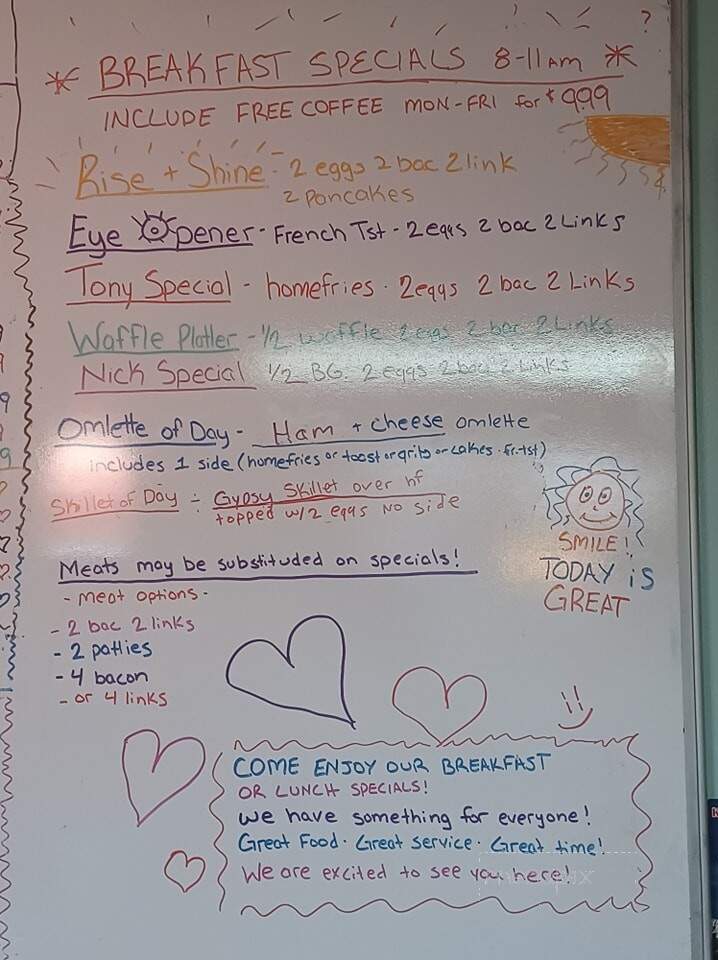 * BREAKFAST SPECIALS 8-11AM *
INCLUDE FREE COFFEE MON-FRI for $9.99
Rise + Shine - 2 eggs 2 bac 2 link
2 poncakes
Eye Opener - French Tst - 2 eggs 2 bac 2 Links
Tony Special - homefries - 2 eggs 2 bac 2 Links
Waffle Platter - 1/2 waffle 2 eggs 2 bac 2 Links
Nick Special 1/2 BG. 2 eggs 2 bac 2 Links
Omlette of Day - Ham + cheese omlette
includes 1 side (homefries or toast or grits or cakes - fr. tst)
Skillet of Day - Gypsy Skillet over hf
topped w/2 eggs No side
SMILE!
TODAY iS
GREAT
Meats may be substituded on specials!
- meat options -
- 2 bac 2 links
- 2 patties
- 4 bacon
- or 4 links
COME ENJOY OUR BREAKFAST
OR LUNCH SPECIALS!
We have something for everyone!
Great Food · Great service · Great time!
We are excited to see you here!